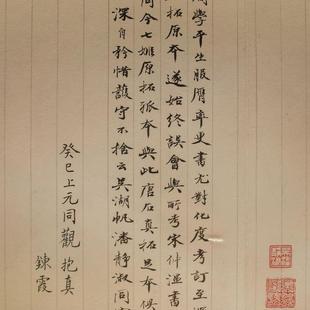 閣學平生服膺率更書尤對化度考訂至
拓原本遂始終誤會與所考宋仲溫書
今七姬原拓孤本與此唐石真拓足本俱
深自矜惜護守不捨云吳湖帆潘靜淑同
癸巳上元同觀 抱真
鍊霞